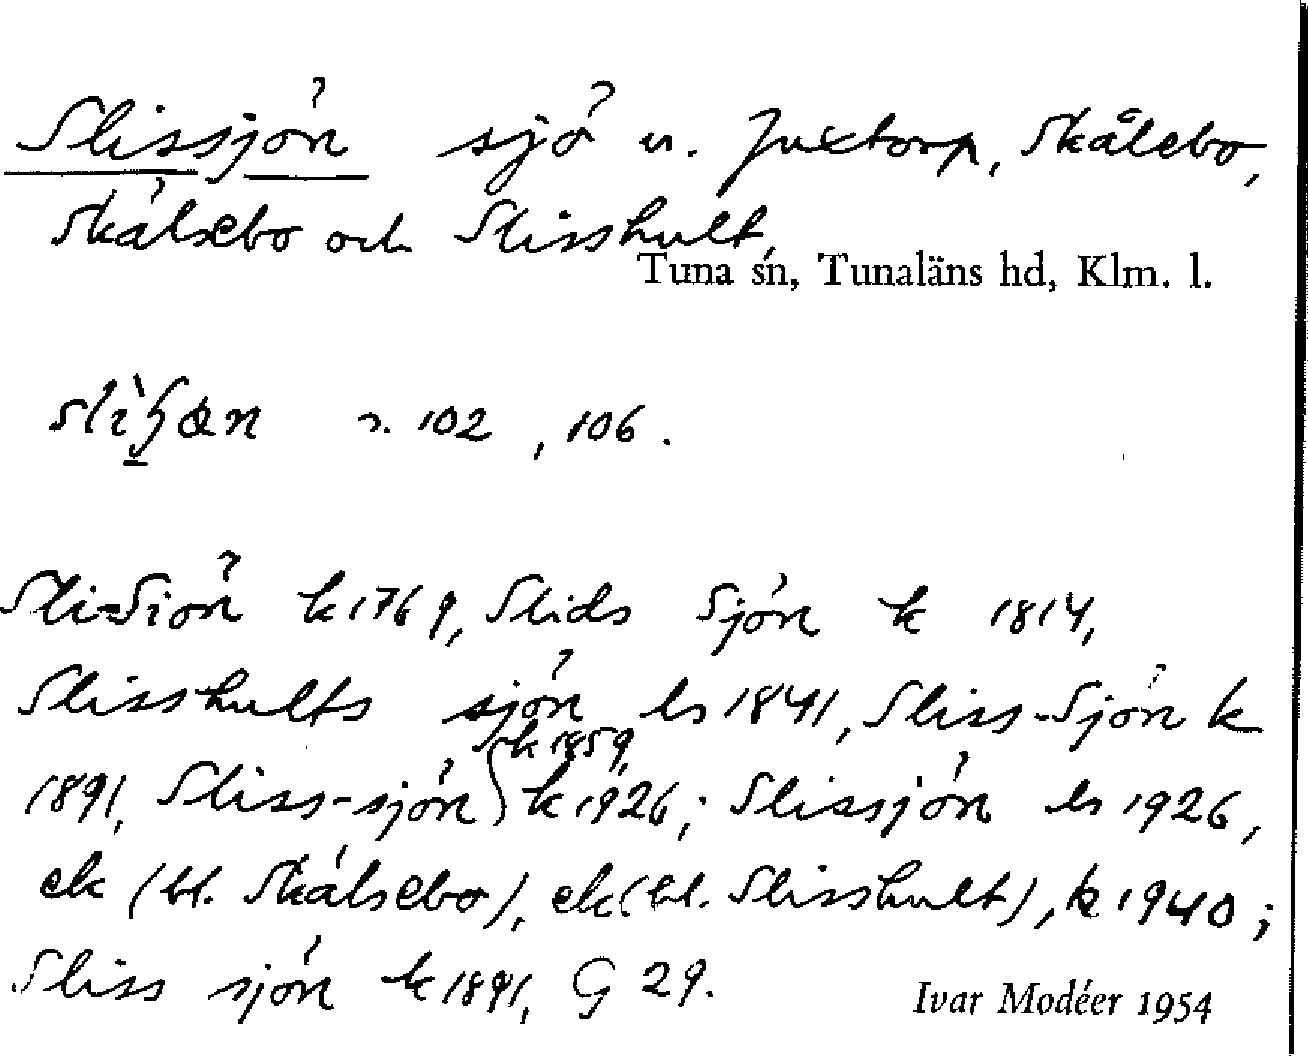 Slissjön sjö u. Juxtorp, Skålebo,
Skälsebo och Slisshult,
Tuna sn, Tunaläns hd, Klm. l.
s. 102, 106.
Sli-Siön k 1769, Slids Sjön k 1814,
Slisshults sjön ls 1841, Sliss-Sjön k
k 1859,
1891, Sliss-sjön k 1926; Slissjön ls 1926,
ek (bl. Skälsebo), ek (bl. Slisshult), k 1940;
Sliss sjön k 1891, G 29.
Ivar Modéer 1954